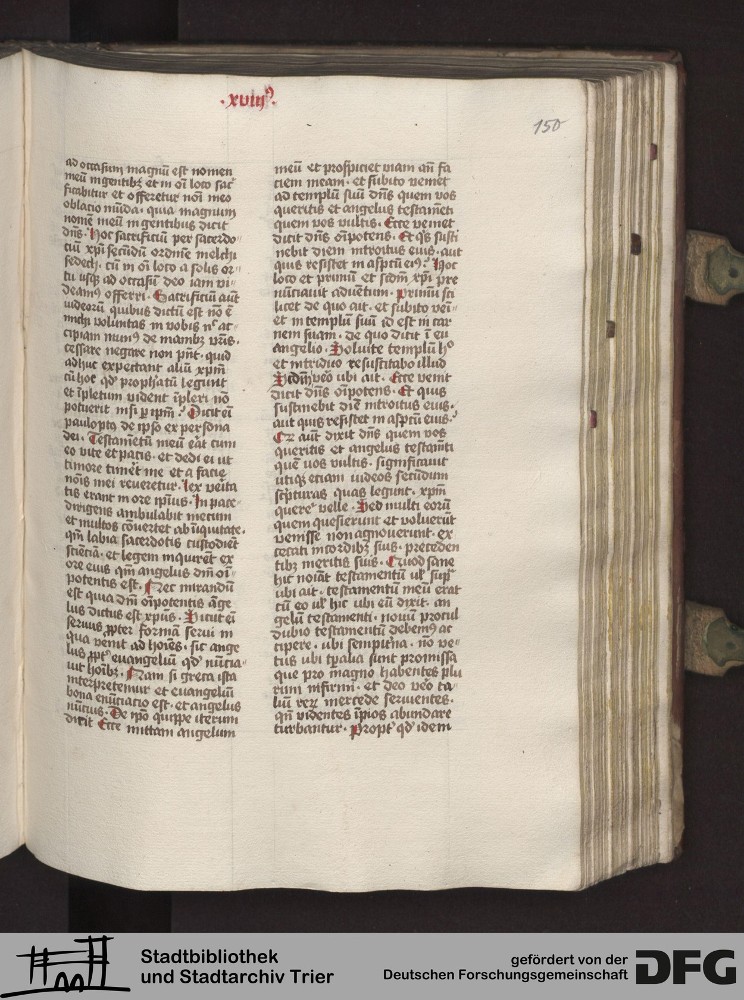 ·xviijꝰ·
150
ad occasum magnū est nomen
meū in gentibꝫ et in oī loco sac͛
ficabitur et offeretur noī meo
oblacio mūda· quia magnum
nomē meū in gentibus dicit
dn̄s· Hoc sacrificiū per sacerdo-
ciū xp̄i secūdū ordinē melchi
sedech· cū in oī loco a solis or-
tu usqꝫ ad occasū deo iam vi-
deamꝰ offerri· Sacrificiū aūt
iudeorū quibus dictū est nō ē
michi voluntas in vobis n͛ ac-
cipiam munꝰ de manibꝫ vr̄is·
cessare negare non pn̄t· quid
adhuc expectant aliū xp̄m
cū hoc qd̛ prophatū legunt
et īpletum vident īpleri nō
potuerit nisi ꝑ ip̄m· Dicit eī
paulopꝰ de ipso ex persona
dei· Testamētū meū erat cum
eo vite et pacis· et dedi ei ut
timore timēret me et a facie
nōīs mei reueretur· lex v̛ita
tis erat in ore ipsius· In pace
dirigens ambulabit mecum
et multos cōuertet ab iniquitate·
qm̄ labia sacerdotis custodiēt
sciēciā· et legem inquirēt ex
ore eius qm̄ angelus dm̄ oī-
potentis est· Nec mirandū
est quia dm̄ oīpotentis āge
lus dictus est xpūs· Sicut eī
seruus ꝓpter formā serui in
qua venit ad hoīes· sic ange
lus ꝓpt̛ euangeliū qd̛ nūcia-
uit hoībꝫ· Nam si greca ista
interpretemur et euangeliū
bona enūciatio est· et angelus
nūcius· De ip̄o quippe iterum
dicit Ecce mittam angelum
meū et prospiciet viam an̄ fa
ciem meam· et subito veniet
ad templū suū dn̄s quem vos
queritis et angelus testamēti
quem vos vultis· Ecce veniet
dicit dn̄s oīpotens· Et q̄s susti
nebit diem introitus eius· aut
quis resistet in aspc̄tu eiꝰ? Hoc
loco et primū et scd̄m xp̄i pre
nūciauit aduētum· Primū sci
licet de quo ait· et subito veī-
et in templū suū id est in car
nem suam· de quo dicit ī eu
angelio· Soluite templū hͦ
et in triduo resuscitabo illud
Scd̄m v̛o ubi ait· Ecce venit
dicit dn̄s oīpotens· Et quis
sustinebit diē introitus eius·
aut quis resistet in aspc̄tu eius·
Qꝫ aūt dixit dn̄s quem vos
queritis et angelus testam̄ti
quē uos vultis· significauit
utiqꝫ etiam iudeos secūdum
scͥpturas quas legunt· xp̄m
querē velle· Sed multi eorū
quem quesierunt et voluerūt
venisse non agnouerunt· ex
cecati in cordibꝫ suis· preceden
tibꝫ meritis suis· Quod sane
hic noīat testamentū ul͛ supͣ
ubi ait· testamentū meū erat
cū eo ul͛ hic ubi eū dixit· an
gelū testamenti· nouū procul
dubio testamentū debemꝰ ac
cipere· ubi sempit̛na· nō ve-
tus ubi tp̄alia sunt promissa
que pro magno habentes plu
rimi infirmi· et deo v̛o ta-
liū rerꝝ mercede seruientes·
qn̄ vident īpios abundare
turbantur· Propt̛ qd̛ idem
Stadtbibliothek
und Stadtarchiv Trier
gefördert von der
Deutschen Forschungsgemeinschaft
DFG